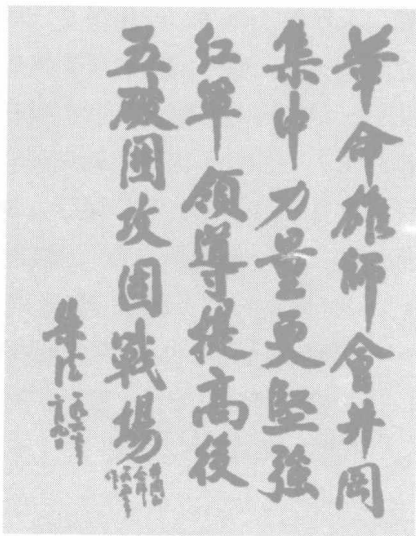 革命雄師會井岡
集中力量更堅強
紅軍領導提高後
五破圍攻固戰場
朱德